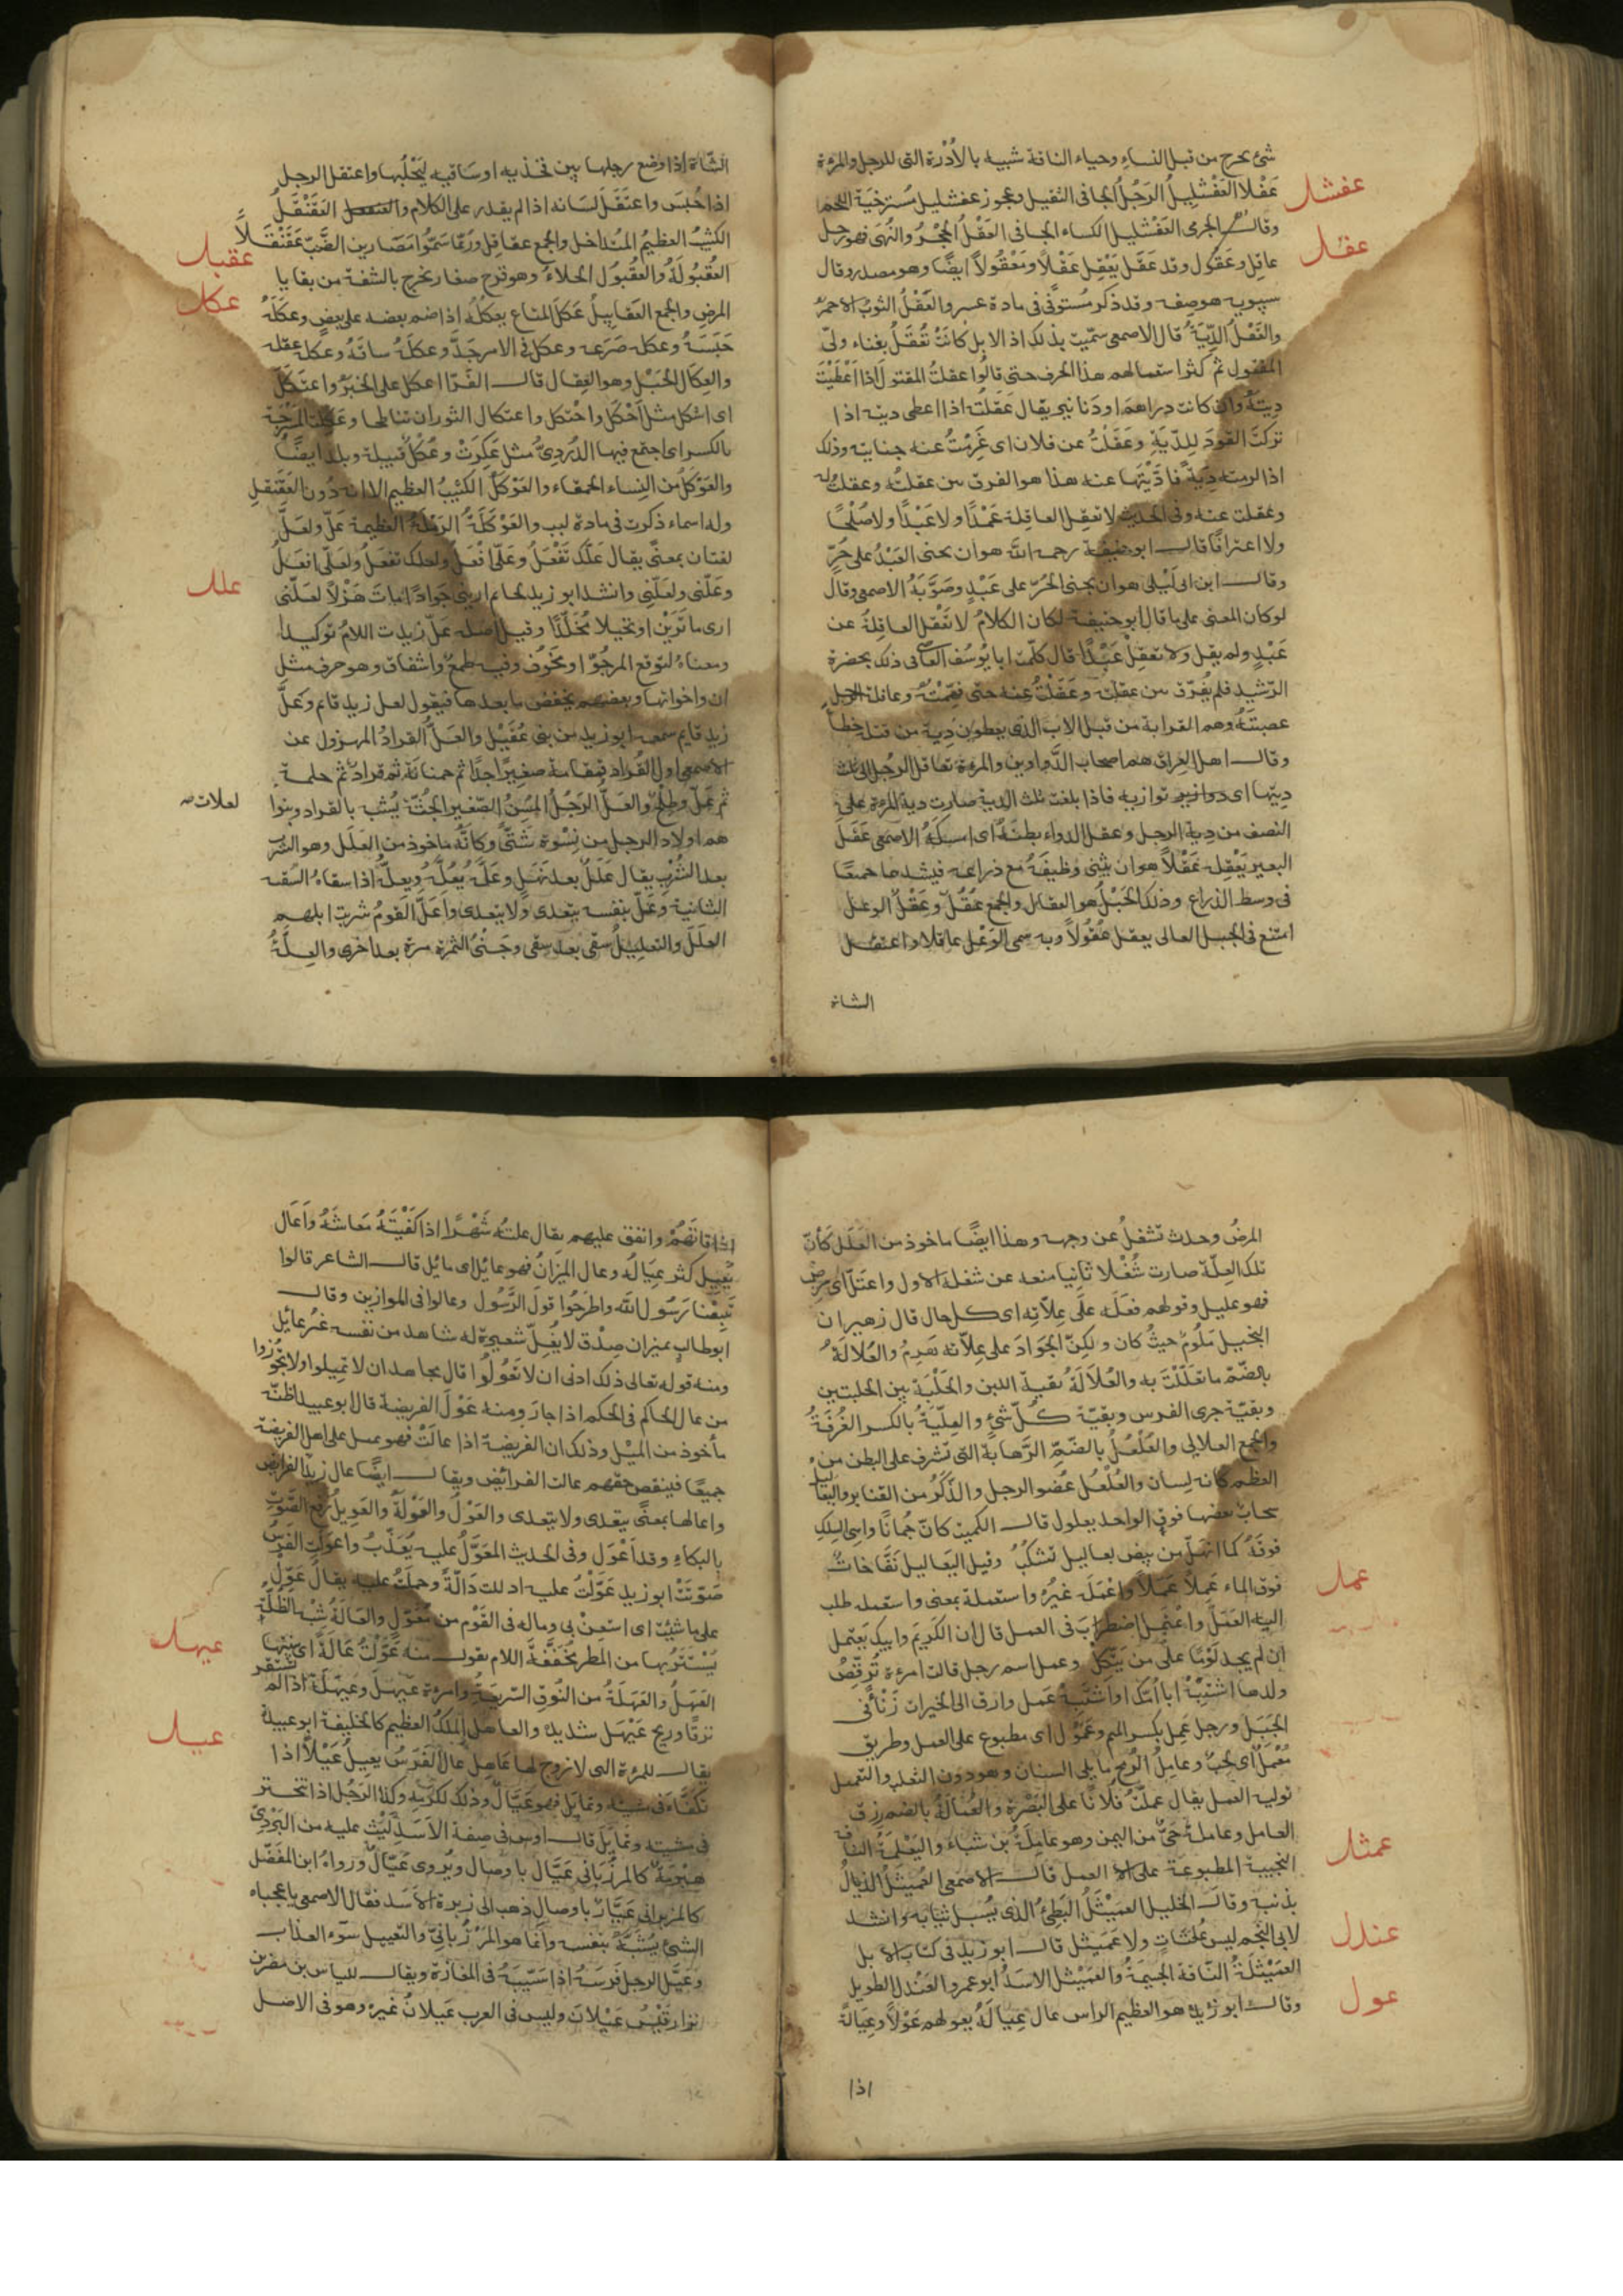 شئ يخرج من قبل النساء وحياء الناقة شبيه بالأدرة التى للرجل والمرءة
عفشل
عَفْلاء العَفْشَلِيلُ الرَجُلُ الجافى الثقيل وعجوز عفشليل مُسترخيَة اللحم
وقال الجرمى العَفْشَليل الكساء الجافى العَقْلُ الحِجْرُ والنُهَى فهو رجل
عقل
عاقِل وعَقُول وقد عقَل يَعْقِل عَقْلاً ومَعْقُولاً ايضًا وهو مصدر وقال
سيبويه هو صِفه وقد ذكر مُستوفًى فى مادة عسر والعَقْلُ الثوبُ الاحمرُ
والعَقْلُ الدِّيَةُ قال الاصمعى سمّيت بذلك اذ الابل كانَتْ تُعْقَلُ بفناء ولىّ
المقتول ثم كثر استعمالهم هذا الحرف حتى قالُوا عقلتُ المقتول اذا اَعْطَيْتَ
دِيَتَهُ وان كانت دراهمَ او دَنانير يقال عَقلتُه اذا اعطى ديته اذا
تركتَ القَودَ لِلدّيَةِ وعَقَلْتُ عن فلان اى غَرِمْتُ عنه جنايته وذلك
اذا لزمته دِيَةٌ فاَدَّيْتَها عنه هذا هو الفرق بين عقلته وعقلتُ له
وعقلت عنه وفى الحديث لا تعقِل العاقِلة عَمْدًا ولا عَبْدًا ولا صُلْحًا
ولا اعترافًا قال ابو حنيفة رحمه اللّه هو ان يجنى العَبْدُ على حُرٍّ
وقال ابن ابى لَيْلى هو ان يجنى الحُرّ على عَبْدٍ وصَوَّبَهُ الاصمعى وقال
لو كان المعنى على ما قال ابو حنيفة لكان الكلامُ لا تَعْقِل العاقِلةُ عن
عَبْدٍ ولم يقل ولا تعقِلْ عَبْدًا قال كلّمتُ ابا يُوسُف القاضى فى ذلك بحضرة
الرّشيد فلم يُفَرّق بين عقلته وعَقَلْتُ عنه حتى فهّمتُهُ وعاقلة الرجل
عصبتَهُ وهم القرابة من قبل الاب الذى يعطون دِيةَ من قتله خطأ
وقال اهل العراق هم اصحاب الدَّواوين والمرءة تعاقل الرجُل الى ثلث
دِيتها اى توازيه فاذا بلغت ثلث الدية صارت دية المرءة على
النصف من دِية الرجل وعقل الدواء بطنَهُ اى امسكَهُ الاصمعى عَقَلَ
البعير يَعْقِله عَقْلاً هو ان يثنى وظيفَهُ مع ذراعه فيشدها جميعًا
فى وسط الذراع وذلك الحَبْلُ هو العِقال والجمع عُقُلٌ وعَقَلَ الوعل
امتنع فى الجبل العالى يعقل عُقُولاً وبه سمى الوَعْل عاقلا واعتقل
الشاة
الشّاة اذا وضع رجلها بين فخذيه او سَاقيه لِيَحْلُبها واعتقل الرجل
اذا حُبِسَ واعتَقَل لسَانه اذا لم يقدر على الكلام والعَقَنْقَلُ
الكثيبُ العظيمُ المُتداخل والجمع عقاقِل ورُبّما سَمَّوا مَصَارين الضَّبّ عَقَنْقَلاً
عقبل
العُقْبُولَةُ والعُقْبُول الحلاءُ وهو قروح صغار تخرج بالشفة من بقايا
عكل
المرضِ والجمع العَقابيلُ عَكلَ المتاع يعكُلُهُ اذا ضم بعضه على بعضٍ وعَكَلَهُ
حَبَسَهُ وعكله صَرَعه وعكل فى الامر جَدَّ وعكلهُ ساقَهُ وعكله عقله
والعِكال الحَبْل وهو العِقال قال الفَرّا اعكل على الخَبَرُ واعتكل
اى اشكل مثل اَحْكَل واحْتكل واعتكال الثوران تناطحا وعكلت المَسْرَجَة
بالكسر اى اجتمع فيها الدُردىُّ مثل عَكِرَتْ وعُكْلُ قبيلة وبلد ايضًا
والعَوْكَلُ من النِساء الحمقاء والعَوْكَلُ الكثيبُ العظيم الا انه دُون العَقَنقل
وله اسماء ذكرت فى مادة لبب والعَوْكَلَةُ الرَمْلةُ العظيمة عَلّ ولعَلّ
علل
لغتان بمعنًى يقال عَلَّك تَفْعَلُ وعَلّى اَفْعَلُ ولعلك تفعَلُ ولعَلّى افعَلُ
وعَلّنى ولعَلّنى وانشد ابو زيد لحاتم ارينى جَوادًا مات هَزْلاً لعَلّنى
ارى ما تَرَيْن او بخيلا مُخَلّدًا وقيل اصله عَلّ زيدت اللامُ توكيدا
ومعناهُ لتوقع المرجُوّ او مَخُوف وفيه طمعٌ واشفاق وهو حرف مثل
ان واخواتها وبعضهم يخفض ما بعدها فيقول لعل زيدٍ قائم وعَلَّ
زيدٍ قايم سمعه ابو زيد من بنى عُقَيْل والعَلُّ القرادُ المهزول عن
الاصمعى اول القُراد قمقامة صغيرًا جدًا ثم حمنانَة ثم قراد ثم حلمة
ثم عَلّ وطِلْحٌ والعَلُّ الرَجُلُ المُسِنُّ الصّغير الجُثّة يُشبه بالقراد وبنوا
لعلات صح
هم اولاد الرجل من نِسْوة شَتَّى وكانّهُ ماخوذ من العَلَل وهو الشرب
بعد الشُرْب يقال عَلَلٌ بعد نَهَلٍ وعَلَّهُ يَعُلُّهُ ويعِلُّهُ اذا سقاهُ السّقيه
الثانية وعَلّ بنفسه يتعدى ولا يتعدى واَعَلّ القومُ شربت ابلهم
العلَلَ والتعليلُ سقى بعد سقى وجَنْىُ الثمرة مرة بعد اخرى والعِلَّةُ
المرضُ وحدث تشغلُ عن وجهه وهذا ايضًا ماخوذ من العَلَل كأنّ
تلك العِلّة صارت شُغْلا ثانِيا منعه عن شغله الاول واعتَلّ اى مرض
فهو عليل وقولهم فعَلَه عَلَى عِلاّتِه اى كل حال قال زهير ان
البخيل مَلُومٌ حيثُ كان ولكنّ الجَوَادَ على عِلاّته هَرِمُ والعُلالَةُ
بالضّمّ ما تعَلَّلْتَ به والعُلاَلَةُ بقية اللبن والحَلْبَة بين الحلبتين
وبقيّة جرى الفرس وبقيّة كُلّ شئٍ والعِلّيّةُ بالكسر الغُرْفَةُ
والجمع العلالى والعُلْعُلُ بالضّمّ الرَّهابةُ التى تشرف على البطن من
العظم كانه لِسان والعُلْعُل عُضو الرجل والذَّكَرُ من القنابر واليعاليل
سحابٌ بعضها فوق بعض الواحد يعلول قال الكميت كانّ جُمانًا واهِىَ السِلكِ
فوقَهُ كما انهَلّ من بِيض يعاليل تسْكبُ وقيل اليَعَاليل نَفّاخاتٌ
عمل
فوق الماء عَمِلاً عَمَلاً واَعْمَلَه غيْرُهُ واستعملهُ بمعنى واستعمله طلب
اليه العَمَلَ واعْتمَل اضطرابَ فى العمل قال ان الكَرِيمَ وابيك يَعْتمِل
اِن لم يجد يَوْمًا عَلَى مَن يَتَّكِلْ وعمل اسم رجل قالت امرءة تُرقّصُ
ولدها اشبِهْ اَبا اُمّك او اشبِه عَمَل وارق الى الخيرات زَنْأً فى
الجَبَل ورجل عَمِل بكسر الميم وعَمُول اى مطبوع على العمل وطريق
مُعْمَل اى لحبٌ وعامِلُ الرُمح ما يلى السِنان وهو دون الثعلب والتعميل
توليه العمل يقال عملتُ فلانًا على البَصْرة والعُمَالةُ بالضم رزق
العامل وعامِلةُ حَىٌّ من اليمن وهو عامِلَةُ بن سَباءَ واليَعْمَلَةُ الناقة
عمثل
النجيبة المطبوعة على العمل قال الاصمعى العَمَيْثَلُ الذيالُ
بذنبه وقال الخليل العَمَيْثَلُ البَطِئُ الذى يُسْبل ثيابه وانشد
عندل
لابى النجم ليس بمُلتاثٍ ولا عَمَيثل قال ابو زيد فى كتاب الابل
العَمَيْثلَةُ الناقة الجسِيمَةُ والعَمَيْثل الاسَدُ ابو عمرو العَنْدل الطويل
عول
وقال ابو زيد هو العظيم الراس عال عِيَالَهُ يعولهم عَوْلاً وعِيَالَةً
اذا
اذا قاتَهُمْ وانفق عليهم يقال علته شَهْرًا اذا كَفَيْتَهُ مَعاشَهُ واَعَال
يُعِيل كثر عِيَالُه وعال المِيزَانُ فهو عائِل اى مائِل قال الشاعر قالوا
تَبِعْنا رَسُول اللّه واطّرَحُوا قولَ الرَّسُول وعالوا فى الموازين وقال
ابو طالب بميزان صِدْق لا يُغِلّ شعيرة له شاهد من نفسه غيْرُ عائِل
ومنه قوله تعالى ذلك ادنى ان لا تَعُولُوا قال مجاهد ان لا تميلوا ولا تجُورُوا
من عال الحاكم فى الحكم اذا جارَ ومنه عَوْلَ الفريضة قال ابو عبيد اظنّه
مأخوذ من الميْل وذلك ان الفريضة اذا عالَتْ فهو تميل على اهل الفريضة
جميعًا فينقص حقهم عالت الفرائِضُ ويقال ايضًا عال زيدٌ الفرائض
واعالها بمعنًى يتعدى ولا يتعدى والعَوْلُ والعَوْلَةُ والعَوِيلُ رَفع الصَّوْتِ
بالبكاءِ وقد اَعْوَل وفى الحديث المُعْوَلُ عليه يُعَذَّبُ واعوَلَت القَوْسُ
صَوّتَتْ ابو زيد عَوّلْتُ عليه ادللت دَالّةً وحملتُ عليه يقال عَوِّل
على ماشِئْتَ اى استعِنْ بى وماله فى القَوْم من مُعَوَّلٍ والعَالَةُ شِبْهُ الظُلَّةِ
عيهل
يُسْتَتَرُ بها من المطر مُخَفَّفَةُ اللام تقول منه عَوَّلْتُ عَالَةً اى بنيتها
العَيْهَلُ والعَيْهَلَةُ من النُوق السّريعةُ وامرءة عيْهَلٌ وعَيْهَلَةٌ اذا لم تستقر
عيل
نزقًا وريح عَيْهَل شديد والعاهل المَلكُ العظيم كالخليفة ابو عبيدة
يقال للمرءة التى لا زوج لها عَاهِل عال الفَرَسُ يعِيلُ عَيْلاً اذا
تكفّاَ فى مشيه وتمايَل فهو عَيَّال وذلك لكرَمِهِ وكذا الرَجُل اذا تبختر
فى مشيته وتمَايَل قال اوس فى صِفة الاَسَدِ لَيْثٌ عليه من البَرْدِىّ
هِبْرِيَةٌ كالمرزُبَانى عَيَّال باوصال ويُروى عَيّالٌ ورواهُ ابن المُفَضّل
كالمزبرانى عَيَّارٌ باوصالٍ ذهب الى زبرة الاَسَد فقال الاصمعى يا عجباه
الشئُ يُشَبَّهُ بنفسه وانما هو المَرْزُبانىّ والتعييل سَوء الغذاء
وعَيَّل الرجل فَرَسَهُ اذا سَيّبَهُ فى المفازة ويقال للياس بن مضر بن
نزار قَيْسُ عَيْلانَ وليس فى العرب عَيلانُ غيرُهُ وهو فى الاصل